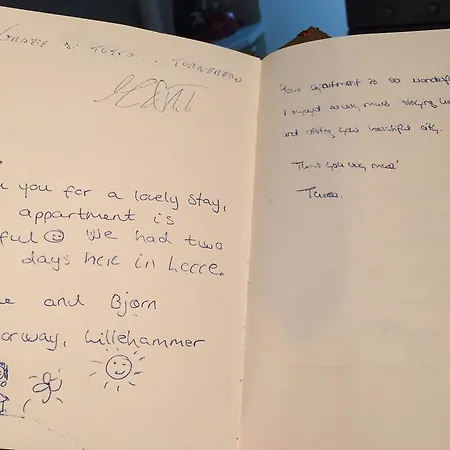 GRAZIE DI TUTTO... TORNEREMO
you for a lovely stay,
appartment is
ful We had two
days here in Lecce.
and Bjørn
orway, Lillehammer
Your apartment is so wonderful
I enjoyed so very much staying
and visiting your beautiful city.
Thank you very much!